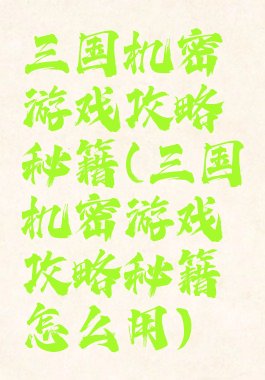 三国机密
游戏攻略
秘籍(三国
机密游戏
攻略秘籍
怎么用)